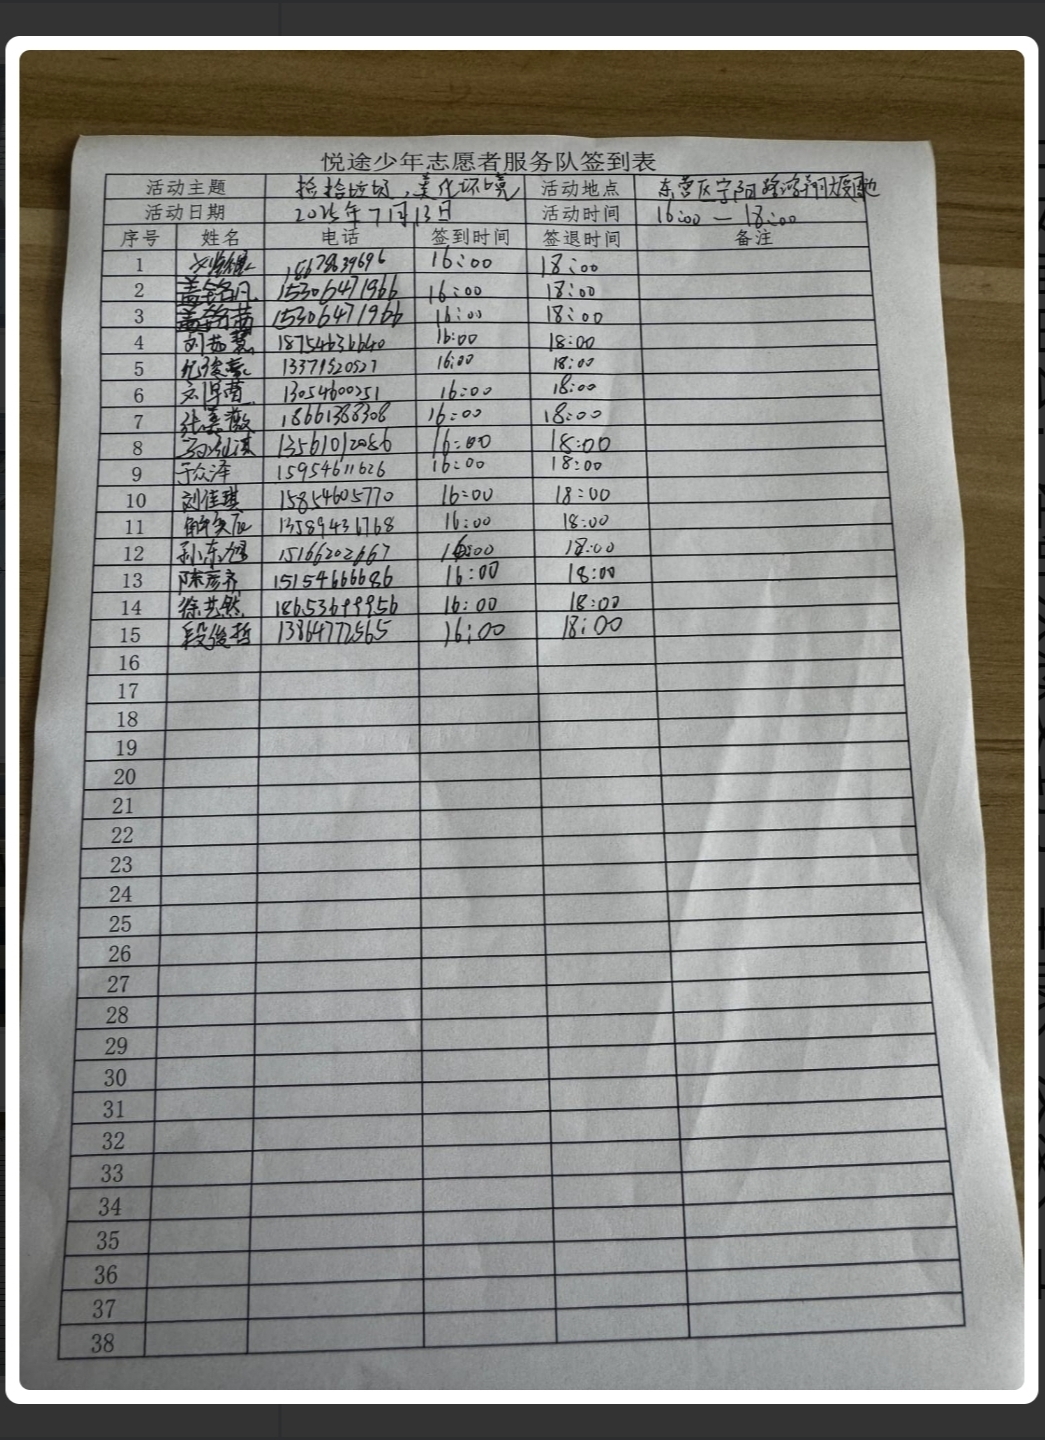 悦途少年志愿者服务队签到表
活动主题 捡拾垃圾，美化环境 活动地点 东营区宁阳路鸿翔大厦周边
活动日期 2025年7月13日 活动时间 16:00 — 18:00
序号 姓名 电话 签到时间 签退时间 备注
1 18678639696 16:00 18:00
2 盖铭凡 15306471966 16:00 18:00
3 盖 15306471966 16:00 18:00
4 刘茹慧 18754636640 16:00 18:00
5 13371520527 16:00 18:00
6 13054600251 16:00 18:00
7 张 18661388308 16:00 18:00
8 13561012086 16:00 18:00
9 于众泽 15954611626 16:00 18:00
10 刘佳琪 15854605770 16:00 18:00
11 13589431768 16:00 18:00
12 孙东旭 15166202667 16:00 18:00
13 陈彦齐 15154666686 16:00 18:00
14 徐艺然 18653699956 16:00 18:00
15 段俊哲 13864772565 16:00 18:00
16
17
18
19
20
21
22
23
24
25
26
27
28
29
30
31
32
33
34
35
36
37
38